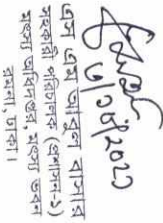 ৬/১০/২০২১
এস এম আবুল বাসার
সহকারী পরিচালক (প্রশাসন-১)
মৎস্য অধিদপ্তর, মৎস্য ভবন
রমনা, ঢাকা।